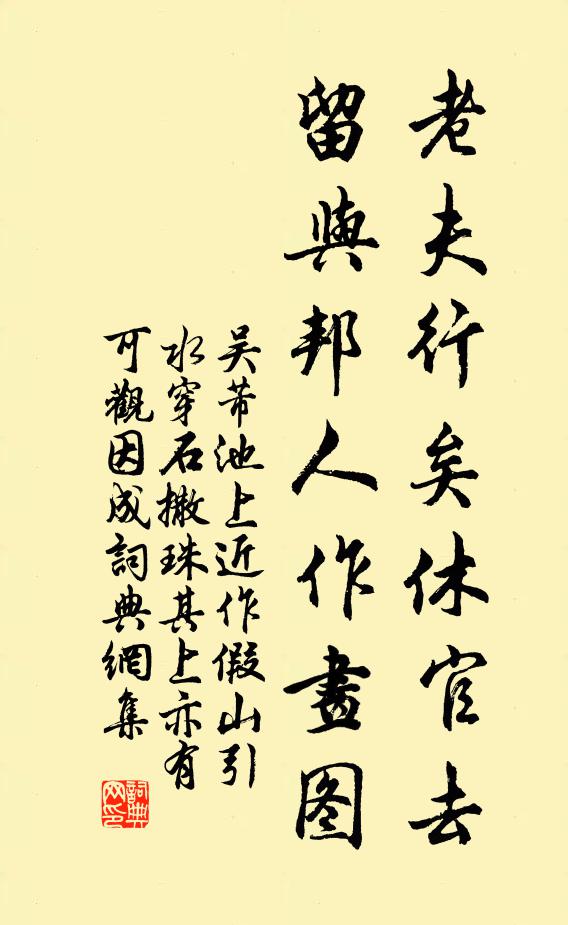 老夫行矣休官去
留與邦人作畫图
吴芾池上近作假山引
水穿石撒珠其上亦有
可觀因成詞典網集
詞典网印